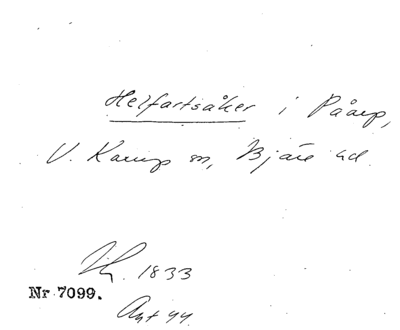 Helfartsåker i Påarp,
V. Karup sn, Bjäre hd.
1833
Nr 7099.
Akt 44